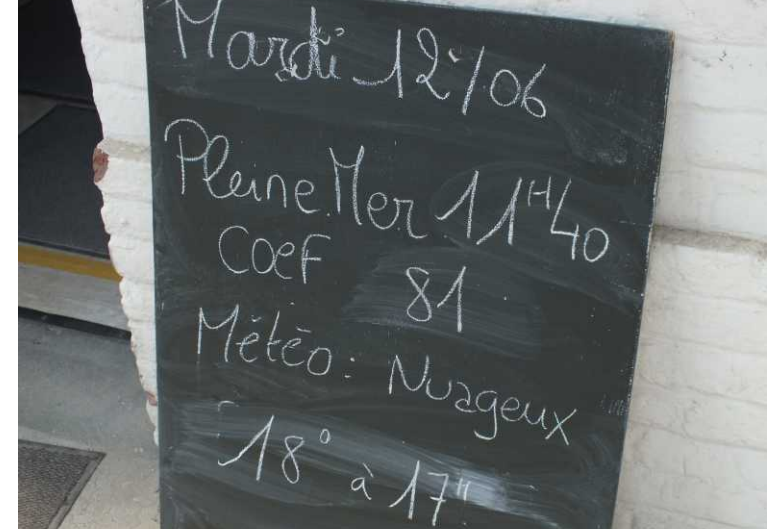 Mardi 12/06
Pleine Mer 11H40
Coef 81
Météo: Nuageux
18° à 17H